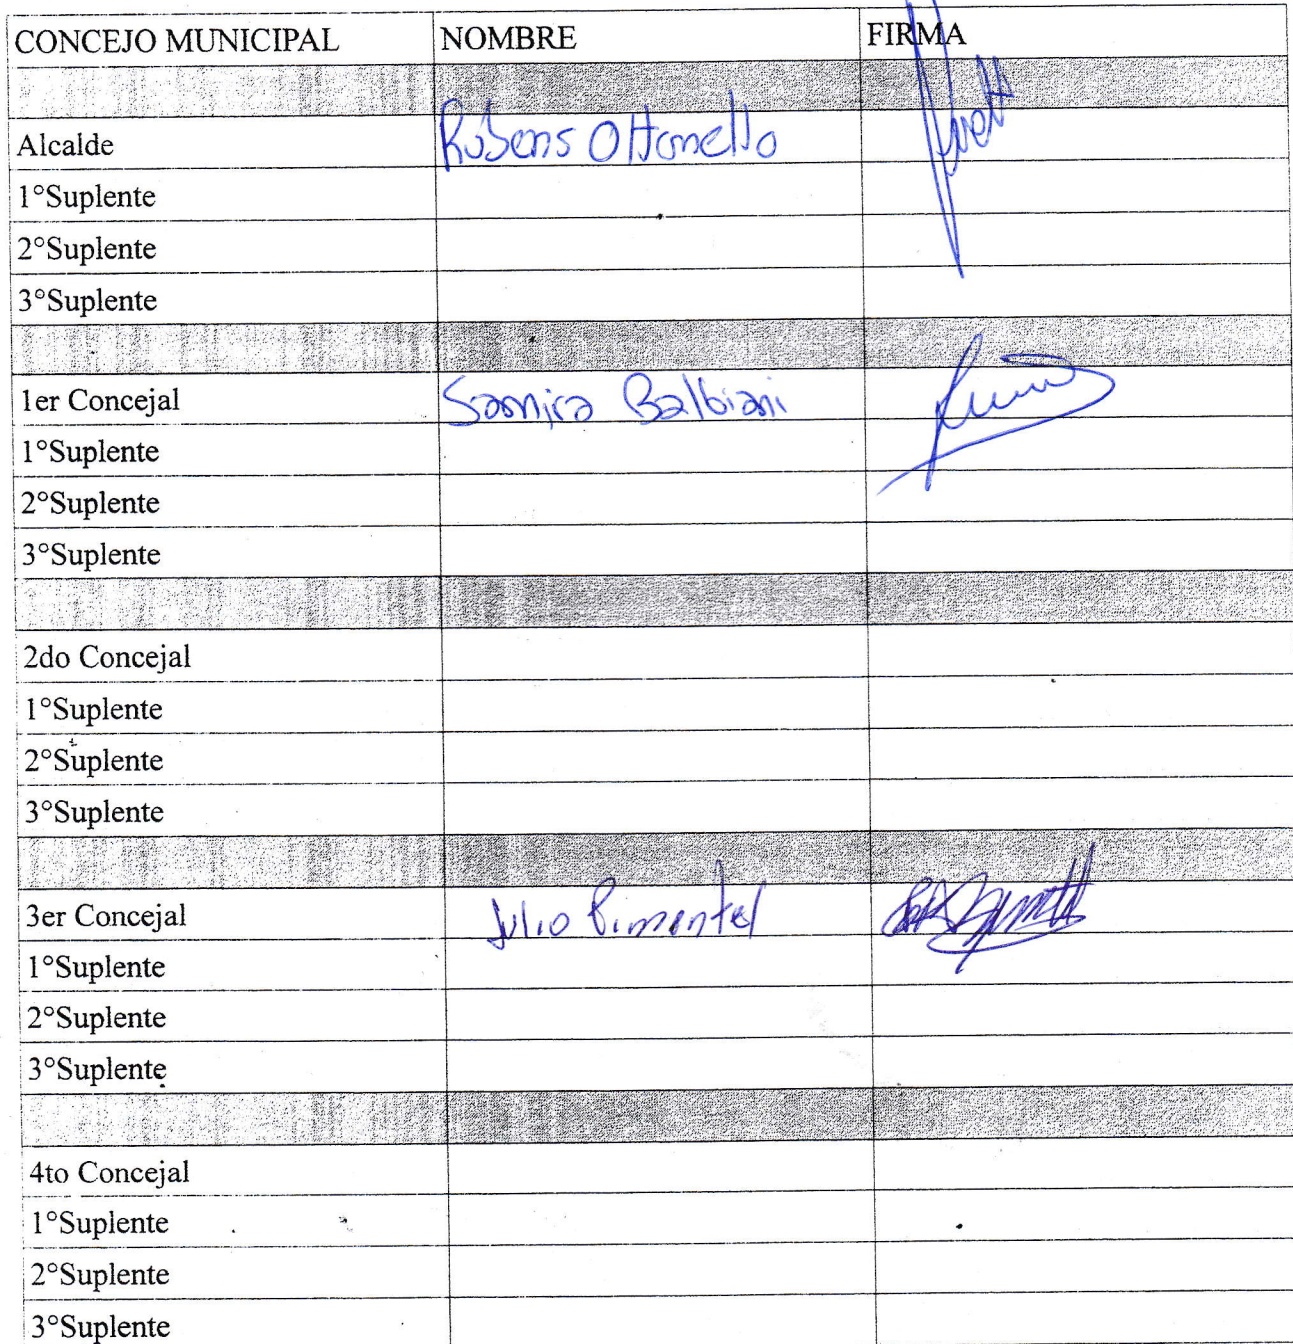 CONCEJO MUNICIPAL NOMBRE FIRMA
Alcalde Rubens Ottonello
1°Suplente
2°Suplente
3°Suplente
1er Concejal Samira Balbiani
1°Suplente
2°Suplente
3°Suplente
2do Concejal
1°Suplente
2°Suplente
3°Suplente
3er Concejal Julio Pimentel
1°Suplente
2°Suplente
3°Suplente
4to Concejal
1°Suplente
2°Suplente
3°Suplente